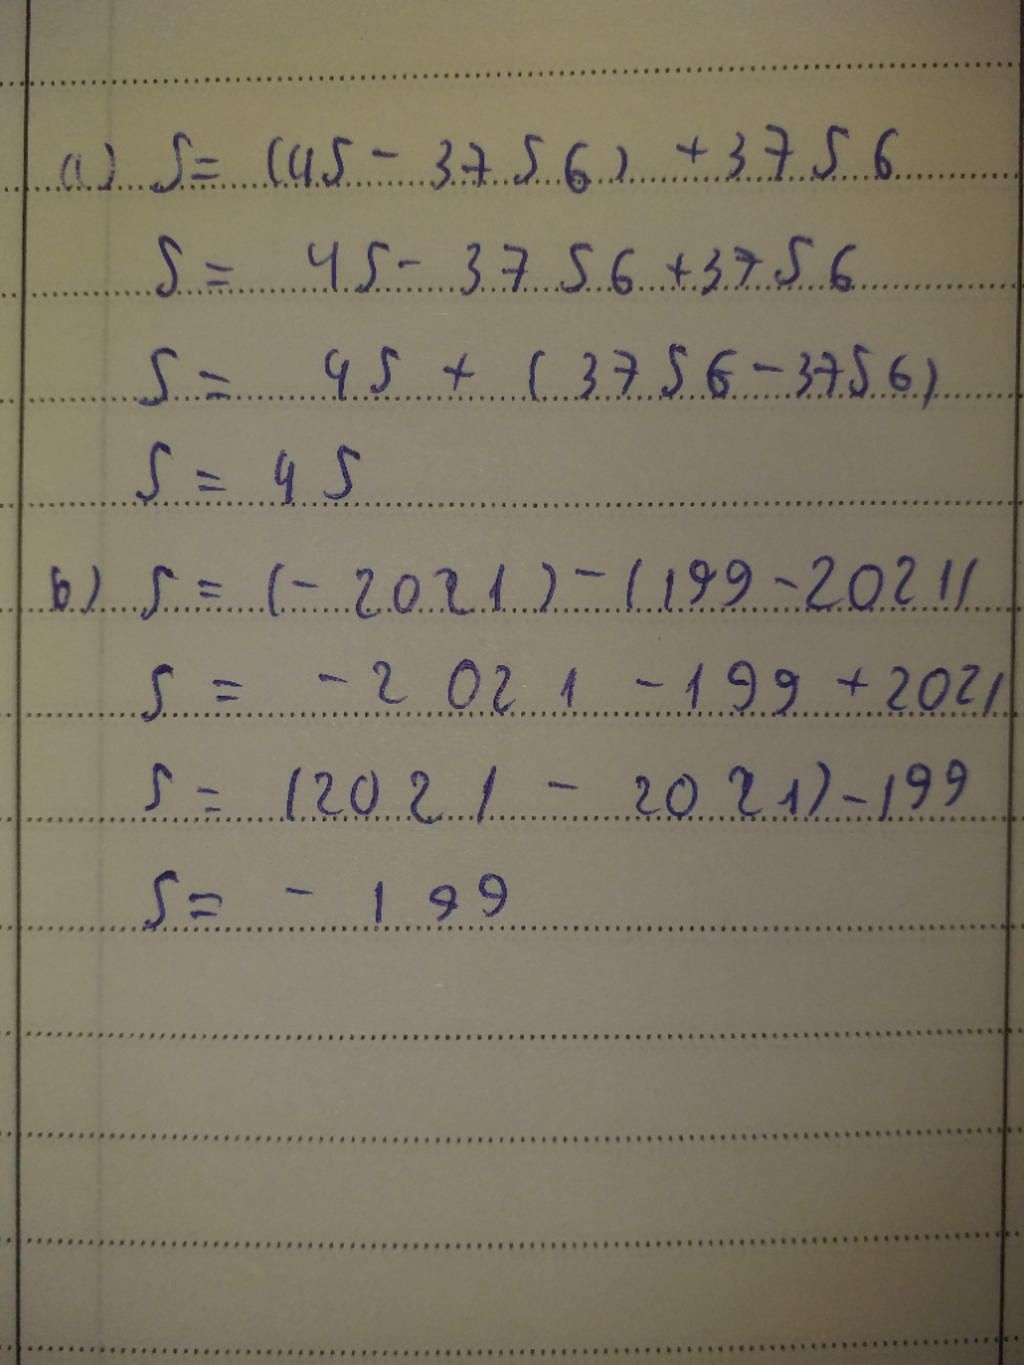 a) S= (45 - 3756) + 3756
S= 45 - 3756 + 3756
S= 45 + (3756 - 3756)
S= 45
b) S= (-2021) - (199 - 2021)
S= -2021 - 199 + 2021
S= (2021 - 2021) - 199
S= -199